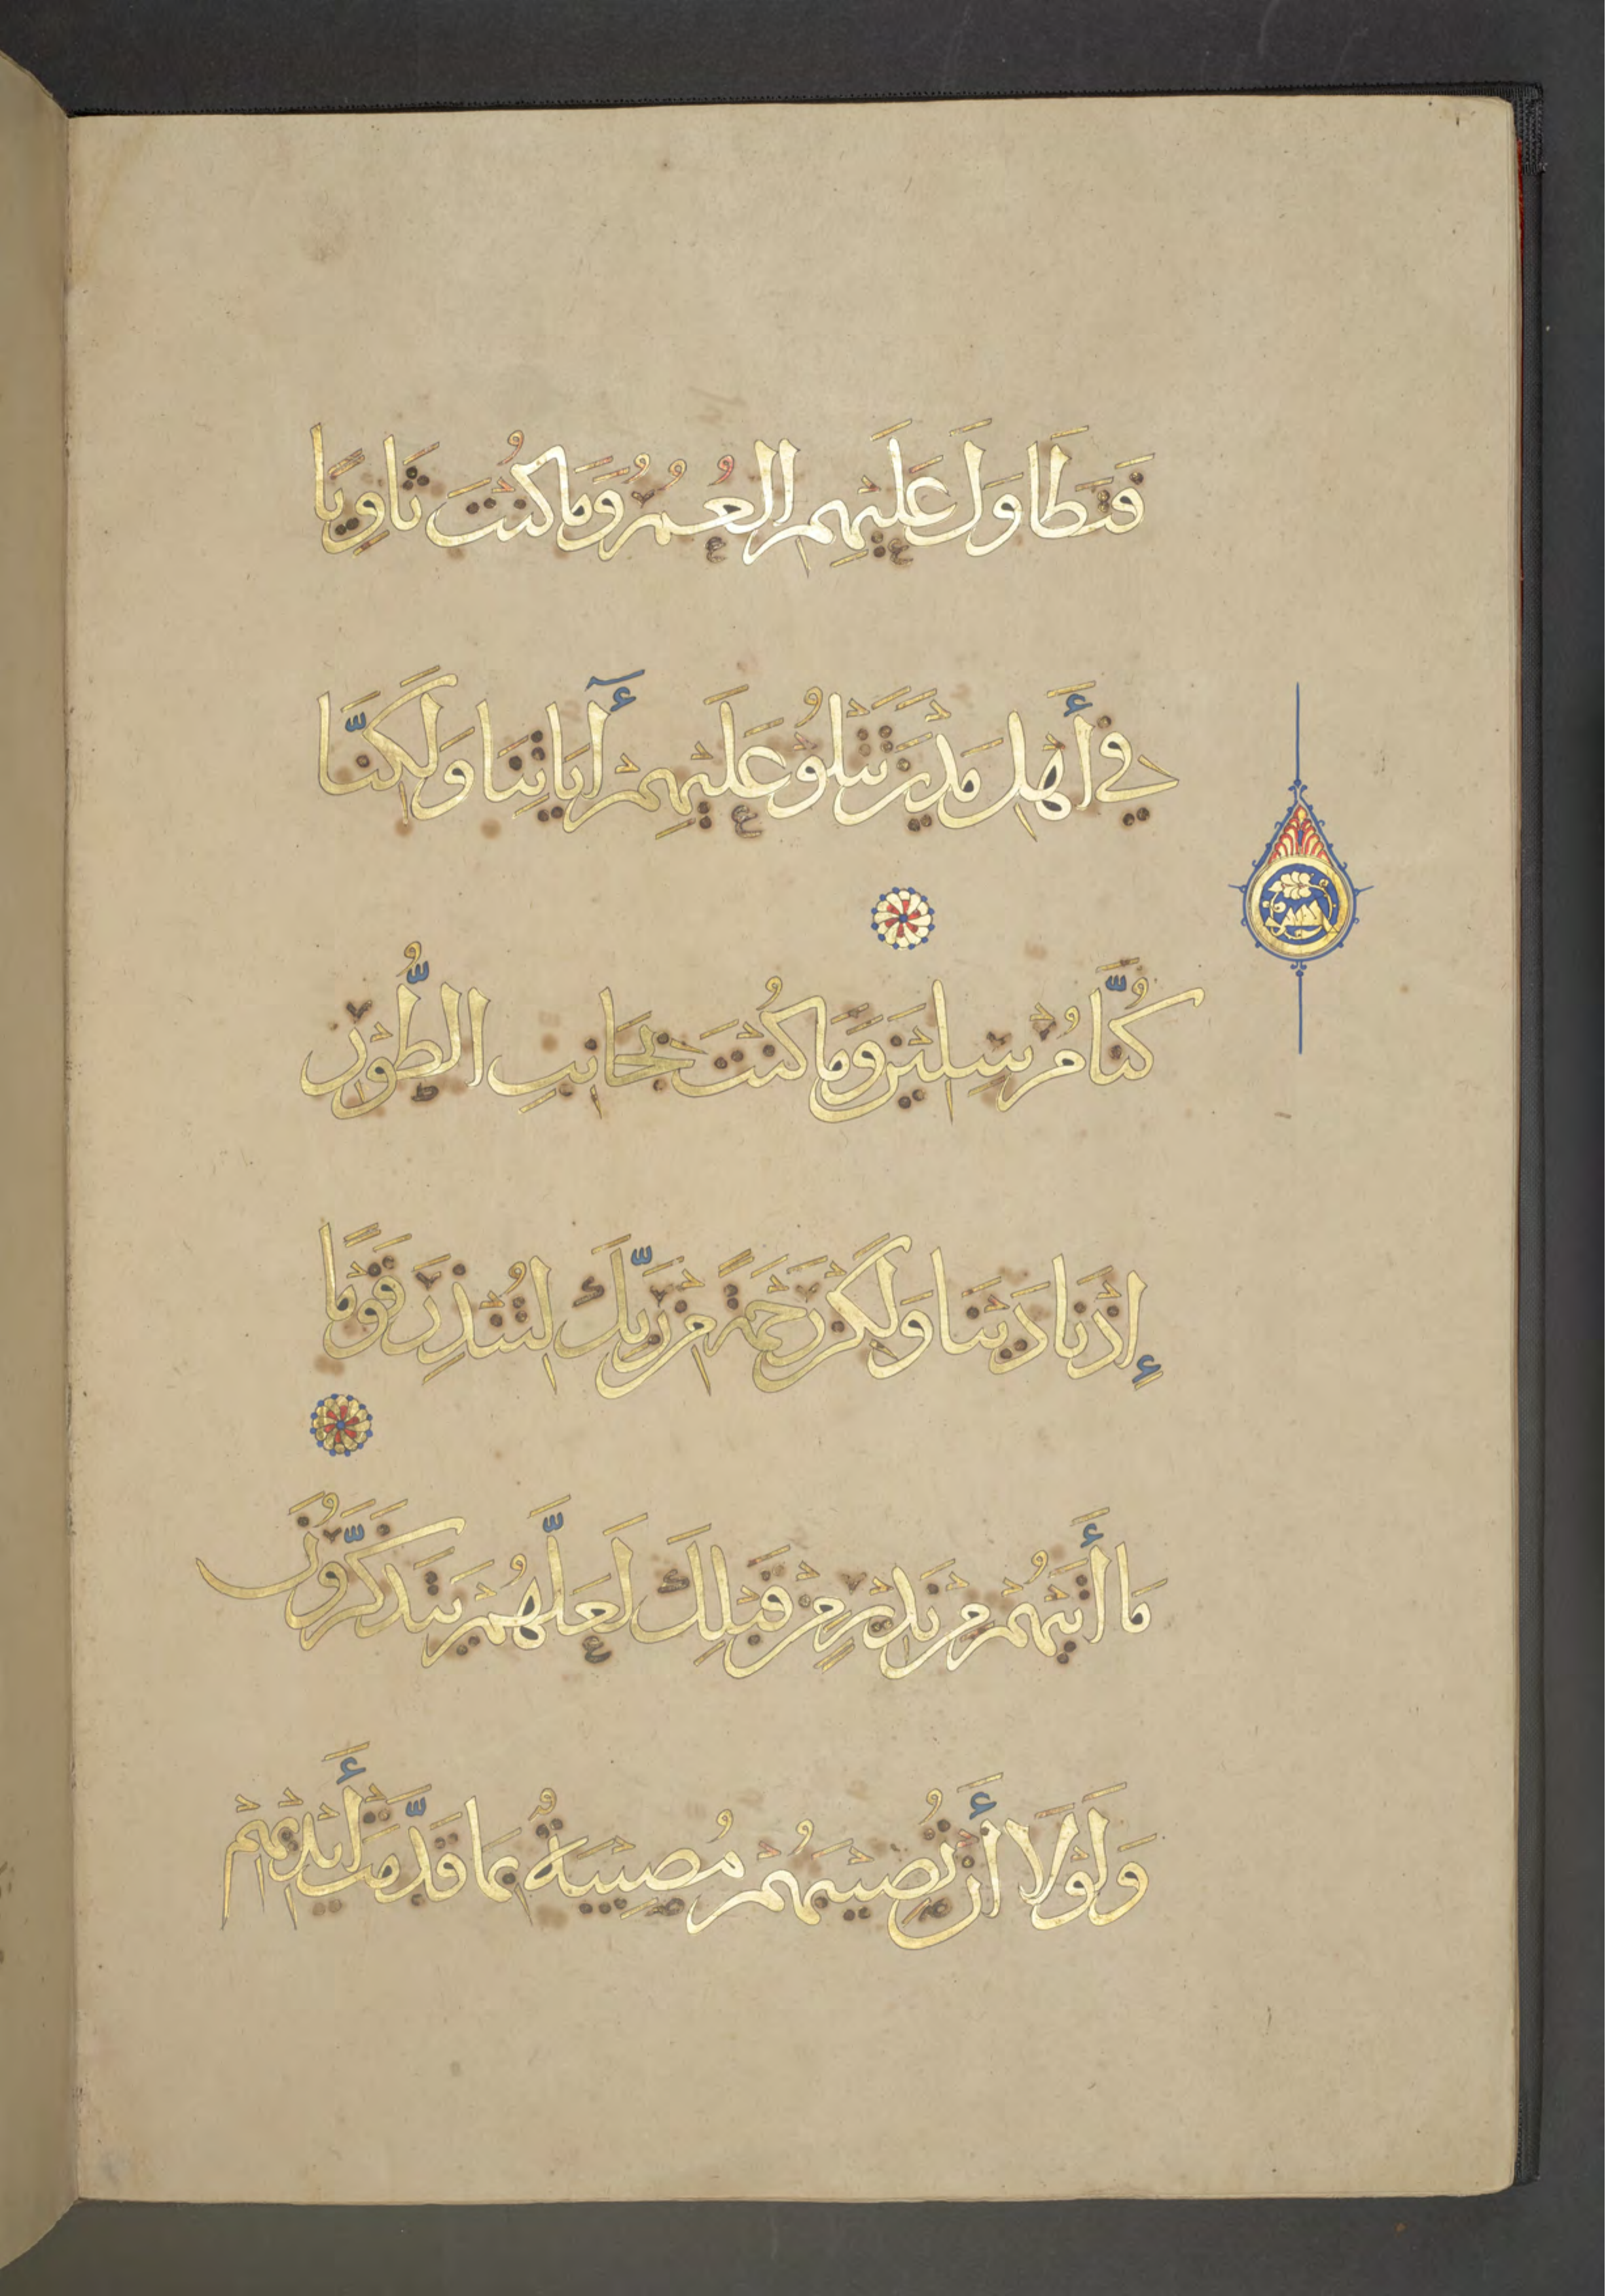 فَتَطَاوَلَ عَلَيْهِمُ الْعُمُرُ وَمَا كُنْتَ ثَاوِيًا
فِي أَهْلِ مَدْيَنَ تَتْلُو عَلَيْهِمْ أٓيَاتِنَا وَلَكِنَّا
كُنَّا مُرْسِلِيْنَ وَمَا كُنْتَ بِجَانِبِ الطُّوْرِ
إِذْ نَادَيْنَا وَلَكِنْ رَحْمَةً مِنْ رَبِّكَ لِتُنْذِرَ قَوْمًا
مَا أَتَيهُمْ مِنْ نَذِيْرٍ مِنْ قَبْلِكَ لَعَلَّهُمْ يَتَذَكَّرُوْنَ
وَلَوْلَا أَنْ تُصِيْبَهُمْ مُصِيْبَةٌ بِمَا قَدَّمَتْ أَيْدِيْهِمْ